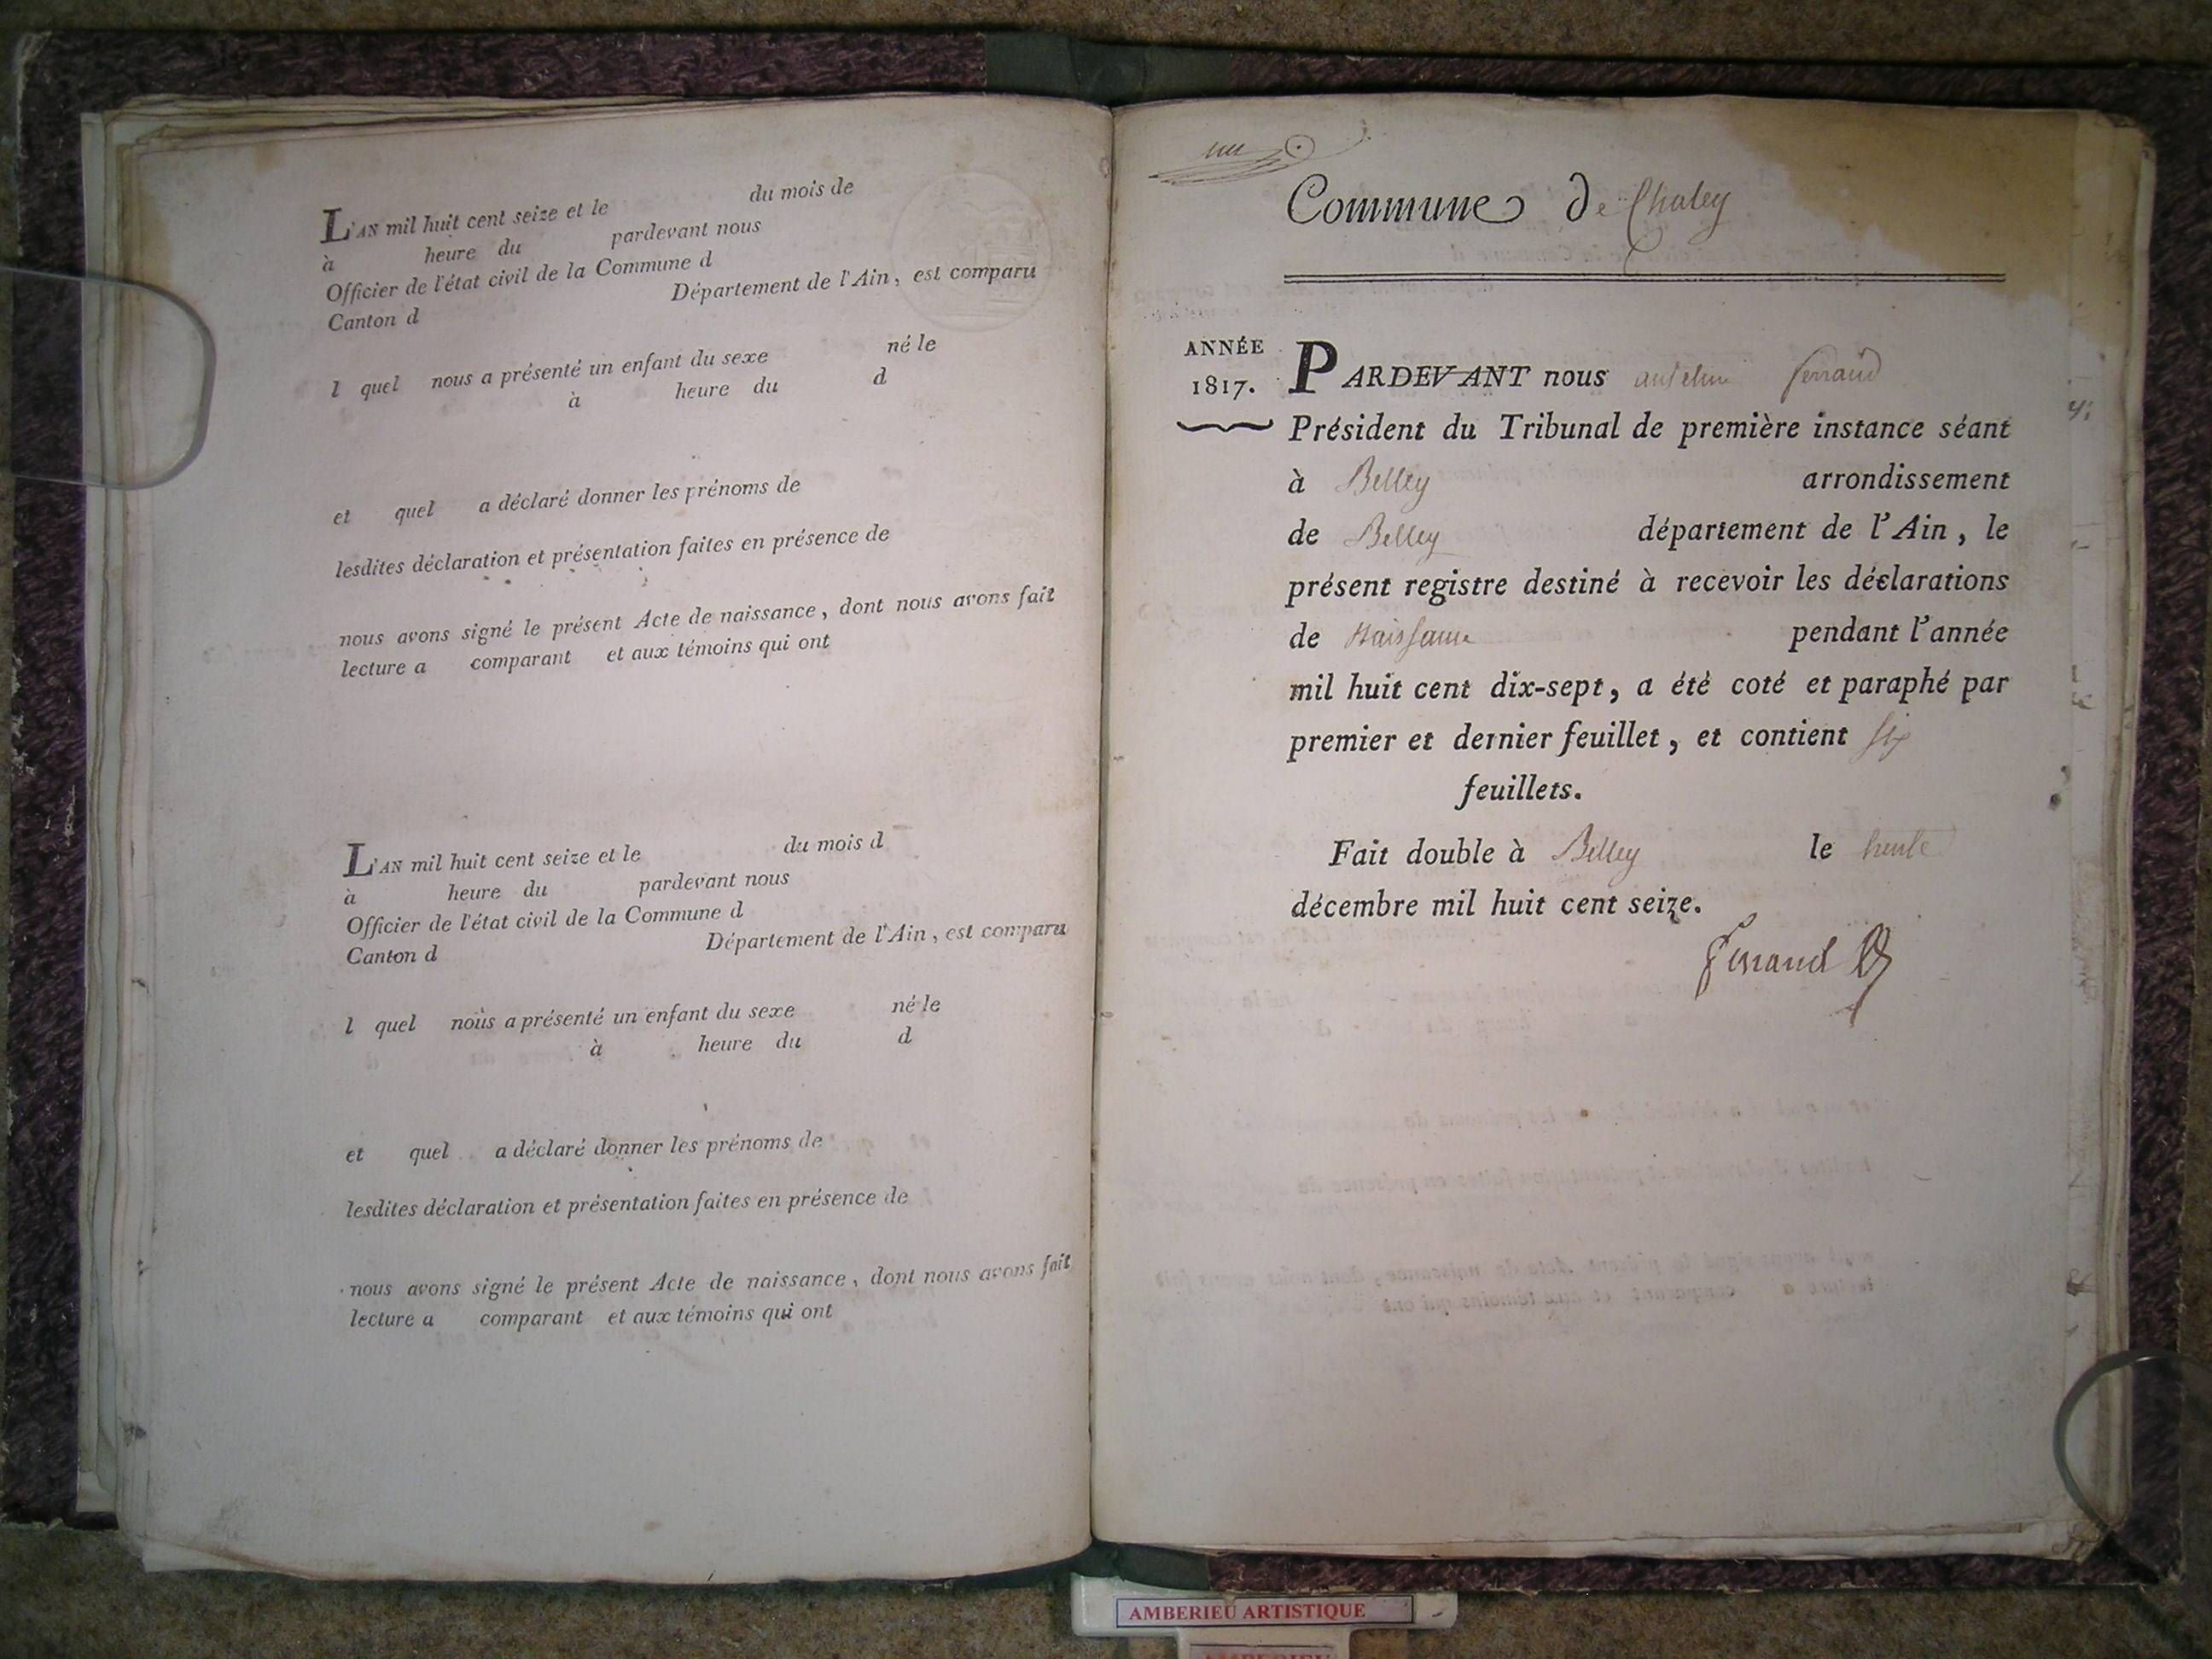 L'AN mil huit cent seize et le du mois de
à heure du pardevant nous
Officier de l'état civil de la Commune d
Canton d Département de l'Ain, est comparu
l quel nous a présenté un enfant du sexe né le
à heure du d
et quel a déclaré donner les prénoms de
lesdites déclaration et présentation faites en présence de
nous avons signé le présent Acte de naissance, dont nous avons fait
lecture a comparant et aux témoins qui ont
L'AN mil huit cent seize et le du mois d
à heure du pardevant nous
Officier de l'état civil de la Commune d
Canton d Département de l'Ain, est comparu
l quel nous a présenté un enfant du sexe né le
à heure du d
et quel a déclaré donner les prénoms de
lesdites déclaration et présentation faites en présence de
nous avons signé le présent Acte de naissance, dont nous avons fait
lecture a comparant et aux témoins qui ont
un
Commune de Chaley
ANNÉE
1817.
PARDEVANT nous anselme ferrand
Président du Tribunal de première instance séant
à Belley arrondissement
de Belley département de l'Ain, le
présent registre destiné à recevoir les déclarations
de Naissance pendant l'année
mil huit cent dix-sept, a été coté et paraphé par
premier et dernier feuillet, et contient six
feuillets.
Fait double à Belley le trente
décembre mil huit cent seize.
ferrand
AMBERIEU ARTISTIQUE
AMBERIEU